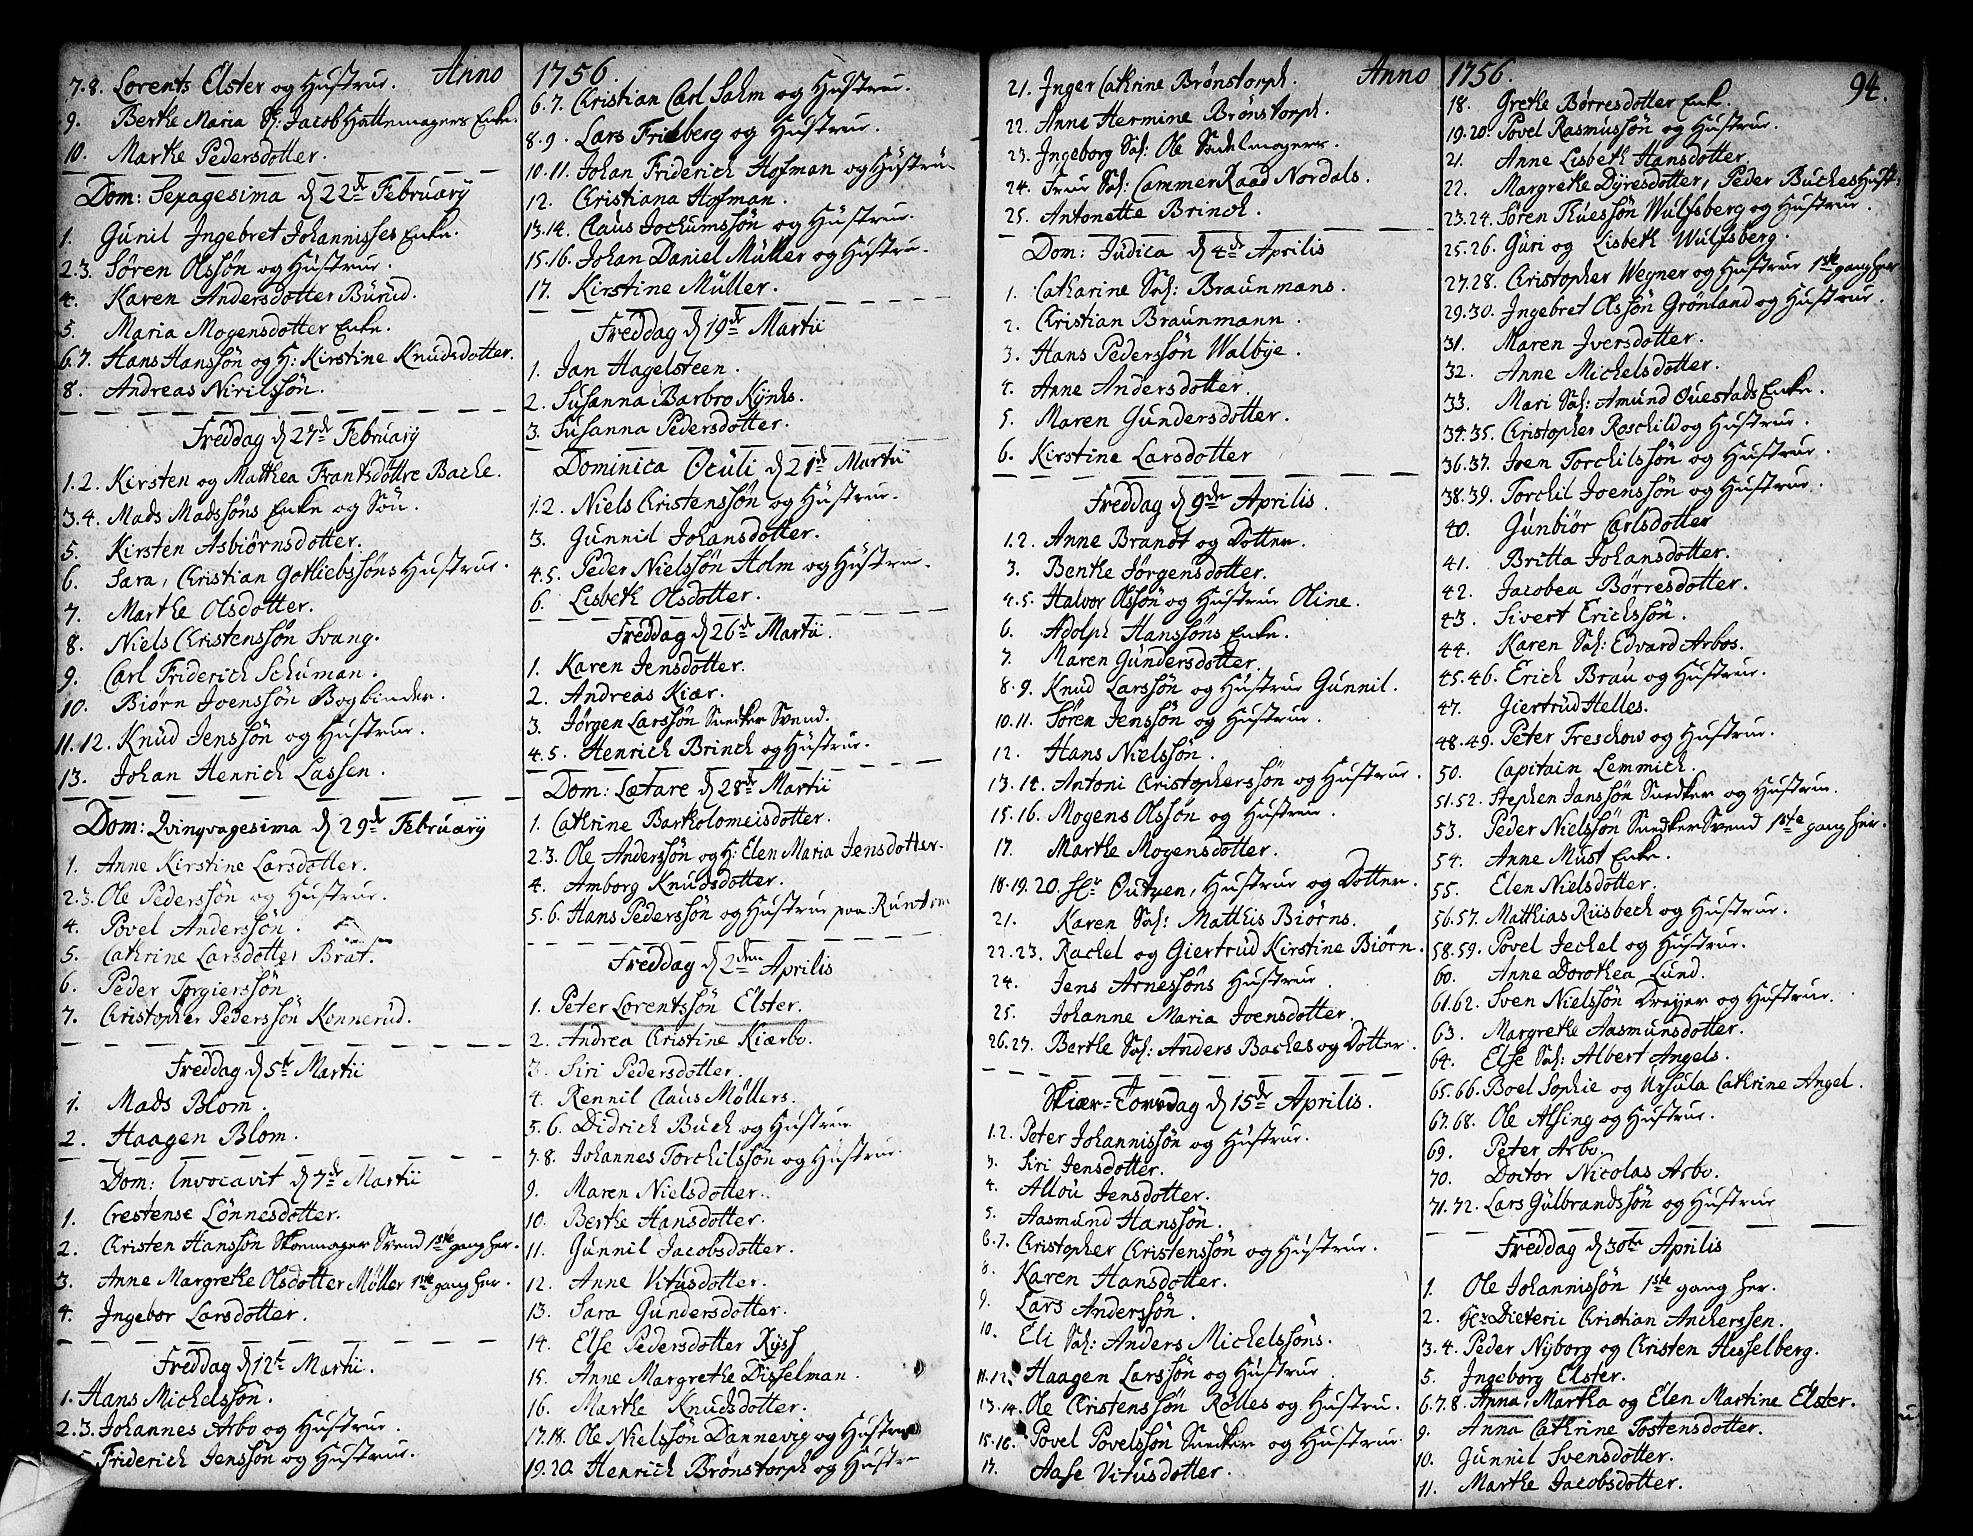 Anno 1756.
7.8. Lorents Elster og Hustrue.
9. Berthe Maria Sal: Jacob Hattemagers Enke.
10. Marthe Pedersdotter.
Dom: Sexagesima d 22de February
1. Gunil Ingebret Johannisses Enke.
2.3. Sören Olssön og Hustrue.
4. Karen Andersdotter Burud.
5. Maria Mogensdotter Enke.
6.7. Hans Hanssön og H: Kirstine Knudsdotter.
8. Andreas Nirilssön.
Freddag d 27de February
1.2. Kirsten og Matthea Frantsdöttre Bache.
3.4. Mads Madssöns Enke og Sön.
5. Kirsten Asbiörnsdotter.
6. Sara, Christian Gotliebssöns Hustrue.
7. Marthe Olsdotter.
8. Niels Christenssön Svang.
9. Carl Friderich Schuman.
10. Biörn Joenssön Bogbinder.
11.12. Knud Jenssön og Hustrue.
13. Johan Henrich Lassen.
Dom: Qvinqvagesima d 29de February
1. Anne Kirstine Larsdotter.
2.3. Ole Pederssön og Hustrue.
4. Povel Anderssön.
5. Cathrine Larsdotter Brat.
6. Peder Torgierssön
7. Christopher Pederssön Konnerud.
Freddag d 5te Martii
1. Mads Blom.
2. Haagen Blom.
Dom: Invocavit d 7de Martii
1. Crestense Lönnesdotter.
2. Christen Hanssön Skoemager Svend 1ste gang her.
3. Anne Margrethe Olsdotter Möller 1ste gang her.
4. Ingebor Larsdotter.
Freddag d 12te Martii.
1. Hans Michelssön.
2.3. Johannes Arbo og Hustrue.
5. Friderich Jenssön og Hustrue.
6.7. Christian Carl Salm og Hustrue.
8.9. Lars Frieberg og Hustrue.
10.11. Johan Friderich Hofman og Hustrue
12. Christiana Hofman.
13.14. Claus Jochumssön og Hustrue.
15.16. Johan Daniel Müller og Hustrue.
17. Kirstine Müller.
Freddag d 19de Martii
1. Jan Hagelsteen.
2. Susanna Barbro Kynks.
3. Susanna Pedersdotter.
Dominica Oculi d 21de Martii
1.2. Niels Christenssön og Hustrue.
3. Gunnil Johansdotter.
4.5. Peder Nielssön Holm og Hustrue.
6. Lisbeth Olsdotter.
Freddag d 26de Martii.
1. Karen Jensdotter.
2. Andreas Kiær.
3. Jörgen Larssön Snedker Svend.
4.5. Henrich Brinch og Hustrue.
Dom: Lætare d 28de Martii
1. Cathrine Bartholomeisdotter.
2.3. Ole Anderssön og H: Elen Maria Jensdotter.
4. Amborg Knudsdotter.
5.6. Hans Pederssön og Hustrue paa Runtom
Freddag d 2den Aprilis
1. Peter Lorentssön Elster.
2. Andrea Christine Kiærbo.
3. Siri Pedersdotter.
4. Rennil Claus Möllers.
5.6. Didrich Buch og Hustrue
7.8. Johannes Torchilssön og Hustrue.
9. Maren Nielsdotter.
10. Berthe Hansdotter.
11. Gunnil Jacobsdotter.
12. Anne Vitusdotter.
13. Sara Gundersdotter.
14. Else Pedersdotter Kyss
15. Anne Margrethe Disselman.
16. Marthe Knudsdotter.
17.18. Ole Nielssön Dannevig og Hustrue
19.20. Henrich Brönstorph og Hustrue
Anno 1756. 94.
21. Inger Cathrine Brönstorph.
22. Anne Hermine Brönstorph.
23. Ingeborg Sal: Ole Sadelmagers.
24. Frue Sal: Cammer Raad Nordals.
25. Antonette Brinch.
Dom: Judica d 4de Aprilis
1. Catharine Sal: Braunmans.
2. Christian Braunmann.
3. Hans Pederssön Walbye.
4. Anne Andersdotter.
5. Maren Gundersdotter.
6. Kirstine Larsdotter
Freddag d 9de Aprilis.
1.2. Anne Brandt og Dotter.
3. Benthe Jörgensdotter.
4.5. Halvor Olssön og Hustrue Oline.
6. Adolph Hanssöns Enke.
7. Maren Gundersdotter.
8.9. Knud Larssön og Hustrue Gunnil.
10.11. Sören Jenssön og Hustrue.
12. Hans Nielssön.
13.14. Antoni Christopherssön og Hustrue.
15.16. Mogens Olssön og Hustrue.
17. Marthe Mogensdotter.
18.19.20. Hr Outzen, Hustrue og Dotter.
21. Karen Sal: Matthis Biörns.
22.23. Rachel og Giertrud Kirstine Biörn.
24. Jens Arnessöns Hustrue.
25. Johanne Maria Joensdotter.
26.27. Berthe Sal: Anders Baches og Dotter.
Skiær-Torsdag d 15de Aprilis.
1.2. Peter Johannissön og Hustrue.
3. Siri Jensdotter.
4. Allou Jensdotter.
5. Aasmund Hanssön.
6.7. Christopher Christenssön og Hustrue.
8. Karen Hansdotter.
9. Lars Anderssön.
10. Eli Sal: Anders Michelssöns.
11.12. Haagen Larssön og Hustrue
13.14. Ole Christenssön Rolles og Hustru.
15.16. Povel Povelssön Snedker og Hustrue
17. Aase Vitusdotter.
18. Grethe Börresdotter Enke.
19.20. Povel Rasmussön og Hustrue.
21. Anne Lisbeth Hansdotter
22. Margrethe Dyresdotter, Peder Buches Hustr:
23.24. Sören Thuessön Wulfsberg og Hustrue.
25.26. Guri og Lisbeth Wulfsberg.
27.28. Christopher Wegner og Hustrue 1ste gang her
29.30. Ingebret Olssön Grönland og Hustrue.
31. Maren Iversdotter.
32. Anne Michelsdotter.
33. Mari Sal: Amund Ouestads Enke.
34.35. Christopher Roschild og Hustrue.
36.37. Iven Torchilssön og Hustrue.
38.39. Torchil Joenssön og Hustrue.
40. Gunbiör Carlsdotter
41. Britta Johansdotter.
42. Jacobea Börresdotter.
43. Sivert Erichssön.
44. Karen Sal: Edvard Arbos.
45.46. Erich Brau og Hustrue.
47. Giertrud Helles.
48.49. Peter Treschow og Hustrue.
50. Capitain Lemmich.
51.52. Stephen Janssön Snedker og Hustrue.
53. Peder Nielssön Snedker Svend 1ste gang her.
54. Anne Must Enke.
55. Elen Nielsdotter.
56.57. Matthias Riisbech og Hustrue.
58.59. Povel Jechel og Hustrue.
60. Anne Dorothea Lund.
61.62. Sven Nielssön Dreyer og Hustrue.
63. Margrethe Aasmunsdotter.
64. Else Sal: Albert Angels.
65.66. Boel Sophie og Ursula Cathrine Angel.
67.68. Ole Alsing og Hustrue.
69. Peter Arbo.
70. Doctor Nicolas Arbo.
71.72. Lars Gulbrandssön og Hustrue
Freddag d 30te Aprilis
1. Ole Johannissön 1ste gang her.
2. Hr Dieteric Christian Ancherssen.
3.4. Peder Nyborg og Christen Hesselberg.
5. Ingeborg Elster.
6.7.8. Anna, Martha og Elen Martine Elster.
9. Anna Cathrine Tostensdotter.
10. Gunnil Svensdotter.
11. Marthe Jacobsdotter.